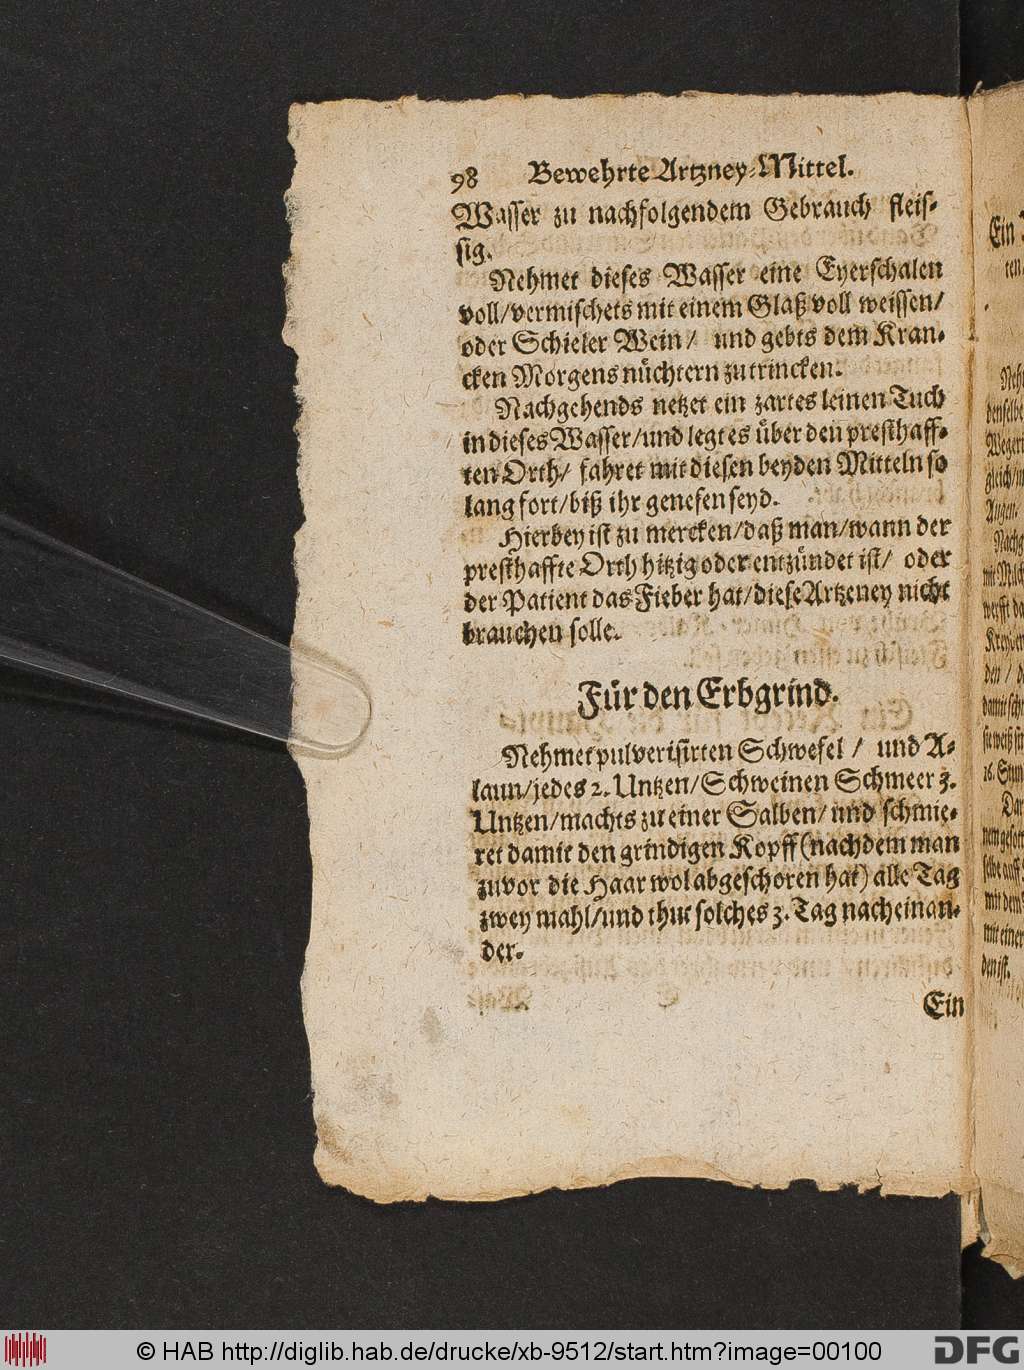 98 Bewehrte Artzney-Mittel.
Wasser zu nachfolgendem Gebrauch fleis-
sig.
Nehmet dieses Wasser eine Eyerschalen
voll/vermischets mit einem Glaß voll weissen/
oder Schieler Wein/ und gebts dem Kran-
cken Morgens nüchtern zu trincken.
Nachgehends netzet ein zartes leinen Tuch
in dieses Wasser/und legt es über den presthaff-
ten Orth/ fahret mit diesen beyden Mitteln so
lang fort/biß ihr genesen seyd.
Hierbey ist zu mercken/daß man/wann der
presthaffte Orth hitzig oder entzündet ist/ oder
der Patient das Fieber hat/diese Artzeney nicht
brauchen solle.
Für den Erbgrind.
Nehmet pulverisirten Schwefel / und A-
laun/jedes 2. Untzen/Schweinen Schmeer 3.
Untzen/machts zu einer Salben/und schmie-
ret damit den grindigen Kopff (nachdem man
zuvor die Haar wol abgeschoren hat) alle Tag
zwey mahl/und thut solches 3. Tag nacheinan-
der.
Ein
Ein
ten
Neh
denselbe
Weger
gleich/
Augen.
Nachg
mit Milch
werfft da
den /
damit
16. Stun
Dar
mit dem
mit einer
den ist.
© HAB http://diglib.hab.de/drucke/xb-9512/start.htm?image=00100
DFG